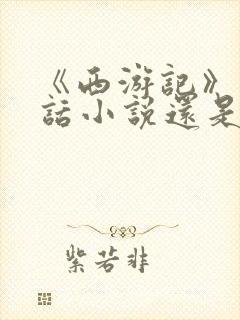 《西游記》
話小説還是
紫若非